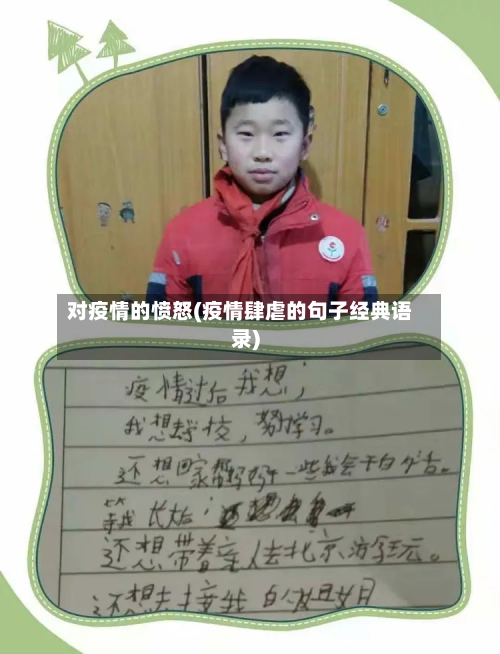 对疫情的愤怒(疫情肆虐的句子经典语
录)
疫情过后我想;
我想去学校,努力学习。
还想回家帮妈妈干一些我会干的
等我长大后
还想带着家人去北京游玩。
还想去接我